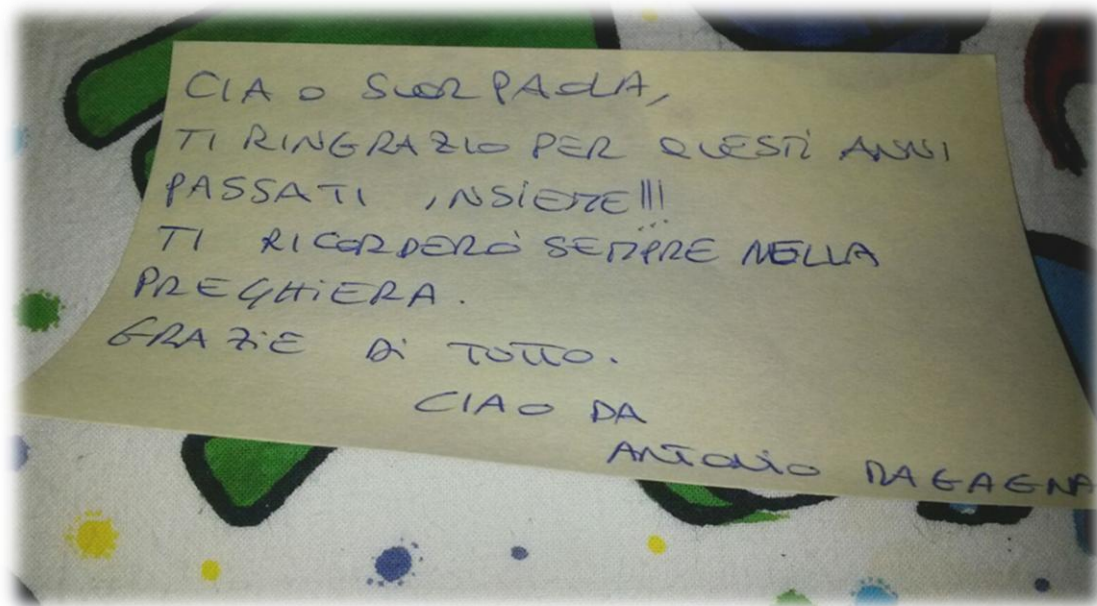 CIAO SUOR PAOLA,
TI RINGRAZIO PER QUESTI ANNI
PASSATI INSIEME!!!
TI RICORDERÒ SEMPRE NELLA
PREGHIERA.
GRAZIE Di TUTTO.
CIAO DA
ANTONIO